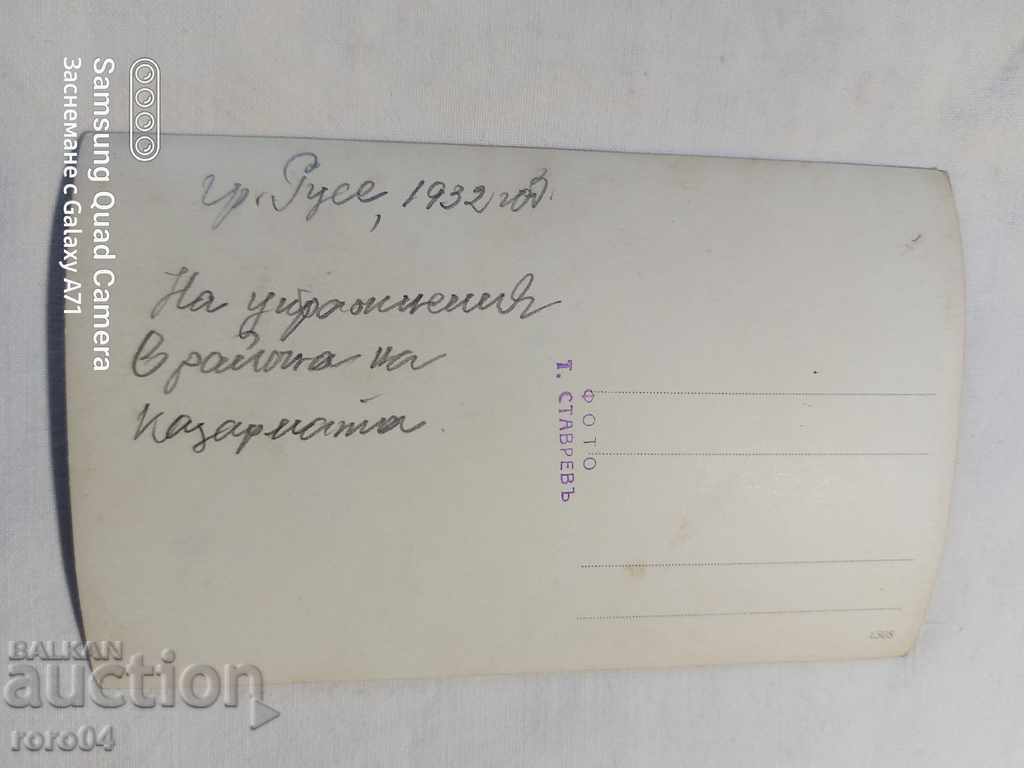 гр. Русе, 1932 год.
На упражнения
в района на
казармата.
ФОТО
Т. СТАВРЕВЪ
Samsung Quad Camera
Заснемане с Galaxy A71
BALKAN
auction
roro04